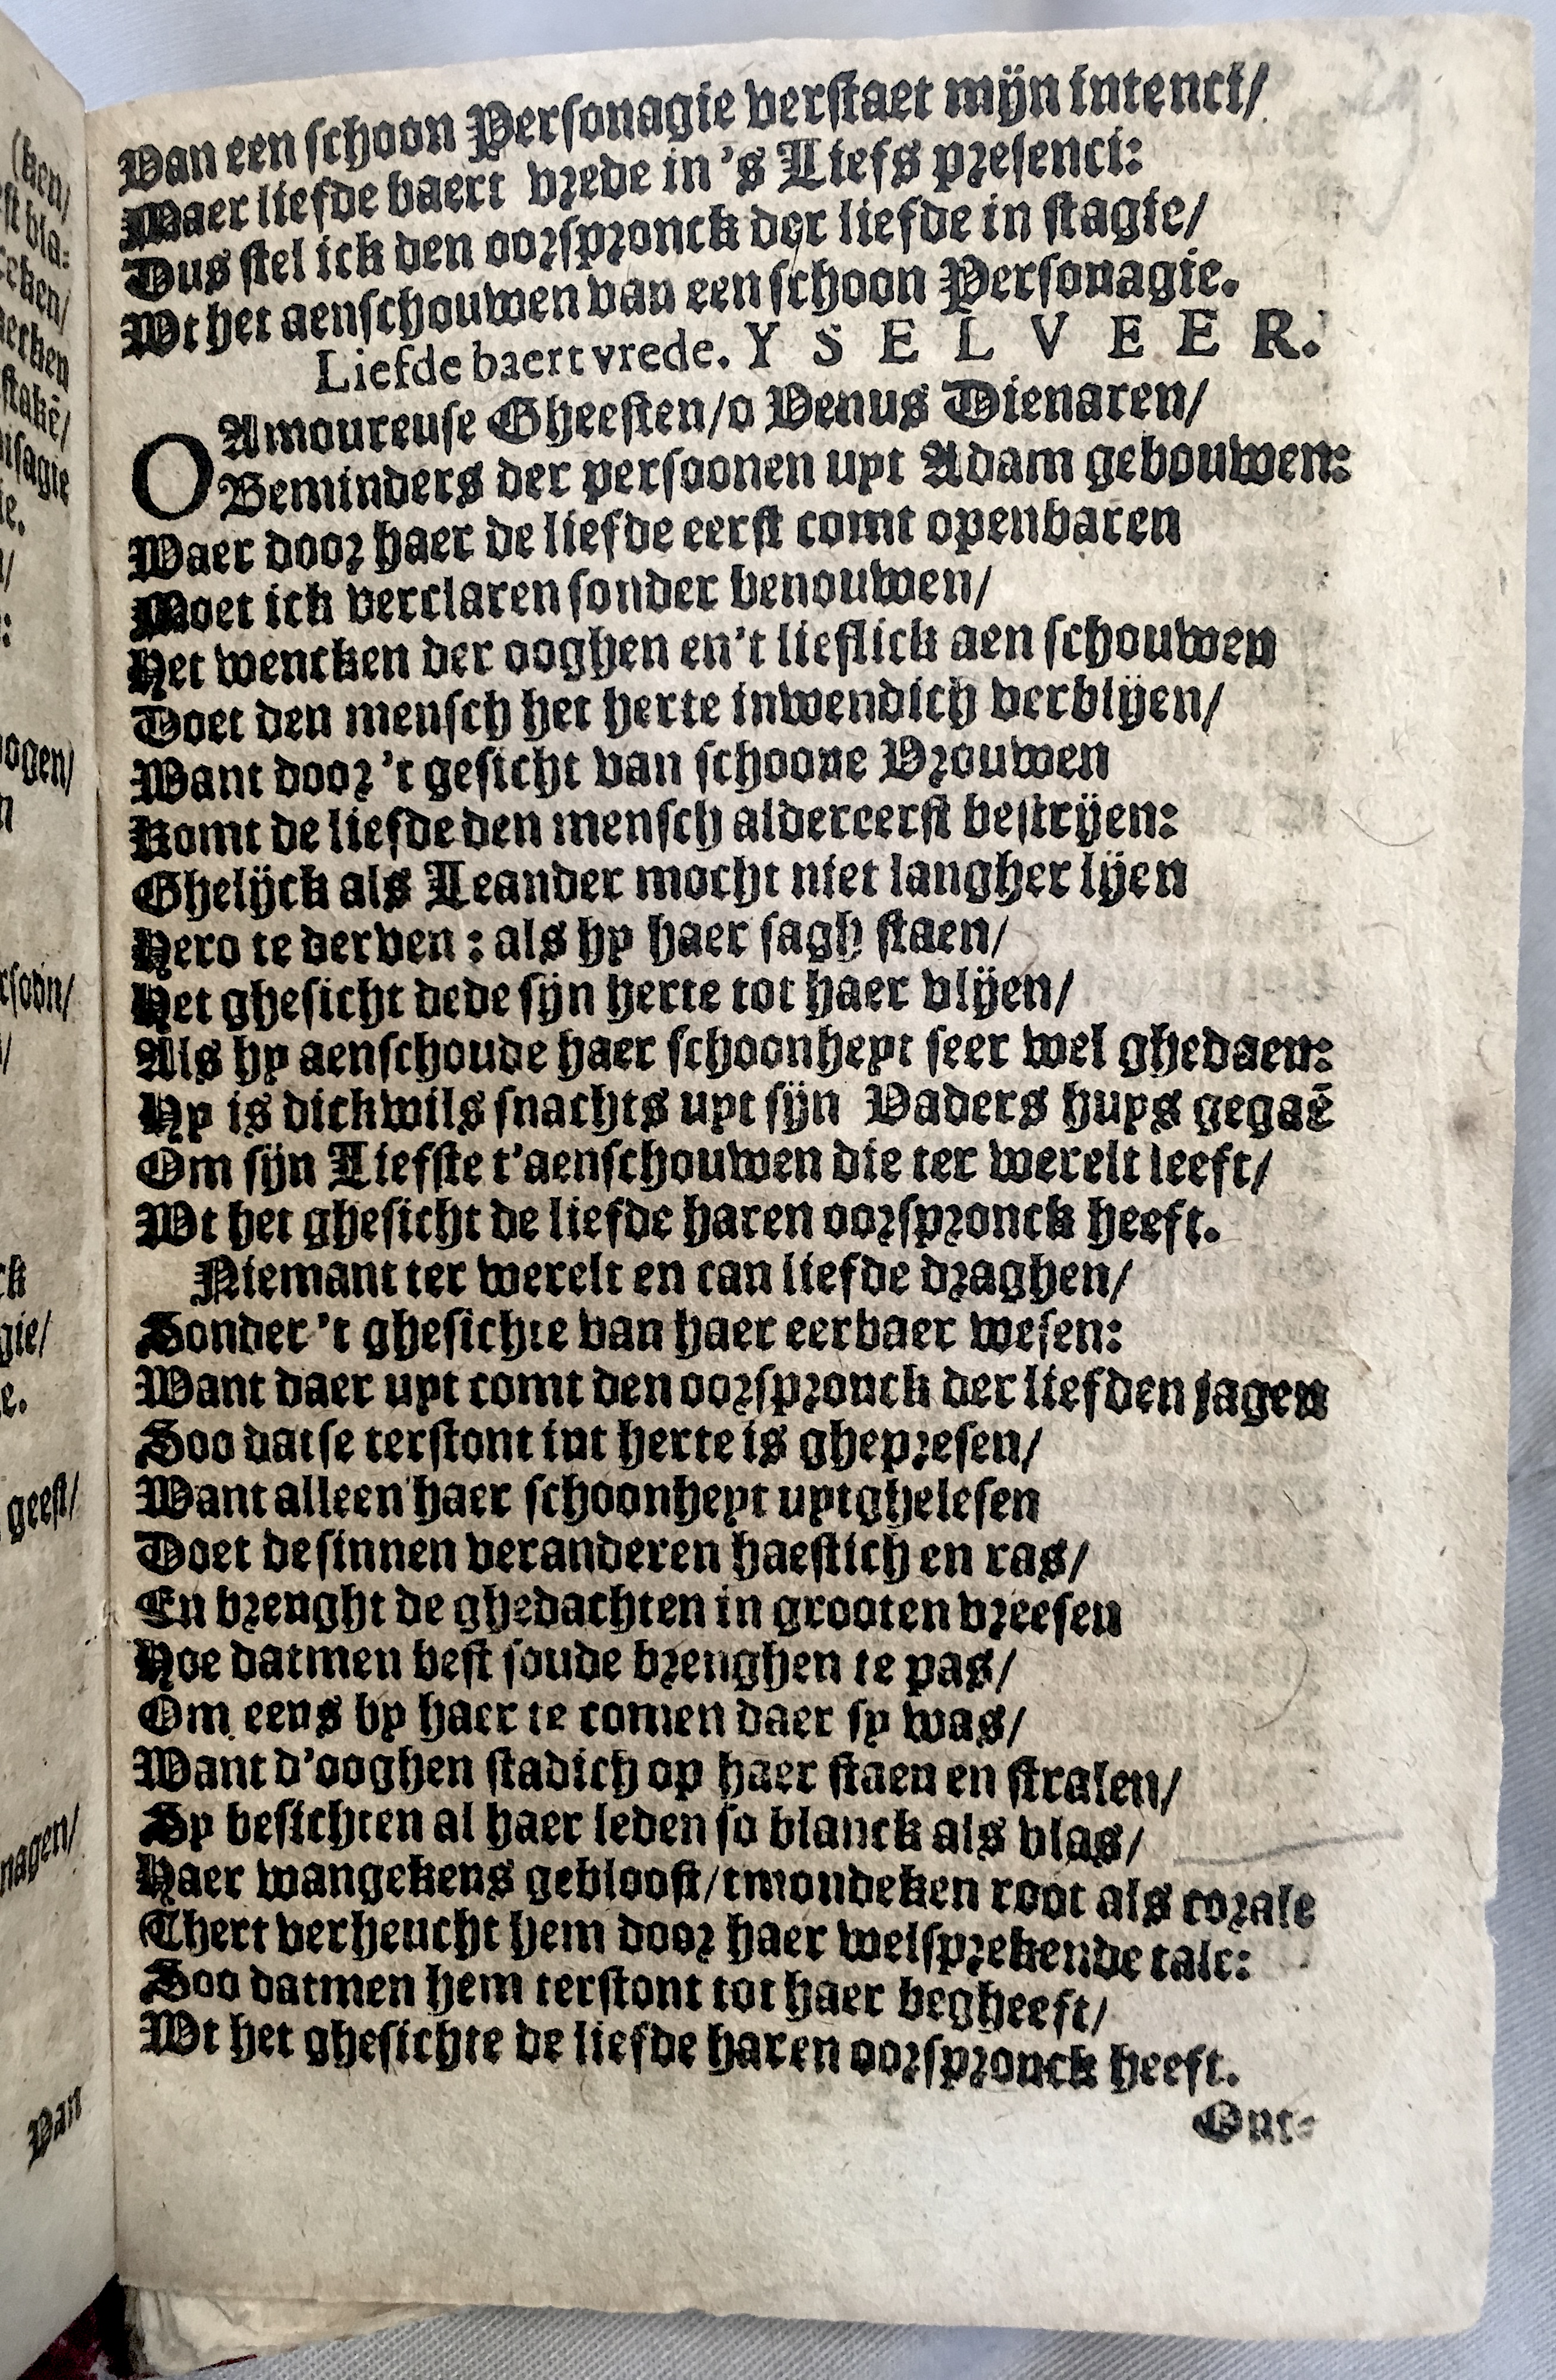 Van een schoon Personagie verstaet mijn intenci/
Maer liefde baert vrede in 's Liefs presenci:
Dus stel ick den oorspronck der liefde in stagie/
Wt het aenschouwen van een schoon Personagie.
Liefde baert vrede. Y S E L V E E R.
O Amoureuse Gheesten/o Venus Dienaren/
Beminders der persoonen uyt Adam gebouwen:
Waer door haer de liefde eerst comt openbaren
Moet ick verclaren sonder benouwen/
Het wencken der ooghen en't lieflick aen schouwen
Doet den mensch het herte inwendich verblijen/
Want door 't gesicht van schoone Vrouwen
Komt de liefde den mensch aldereerst bestrijen:
Ghelijck als Leander mocht niet langher lijen
Hero te derven : als hy haer sagh staen/
Het ghesicht dede sijn herte tot haer vlijen/
Als hy aenschoude haer schoonheyt seer wel ghedaen:
Hy is dickwils snachts uyt sijn Vaders huys gegaē
Om sijn Liefste t'aenschouwen die ter werelt leeft/
Wt het ghesicht de liefde haren oorspronck heeft.
Niemant ter werelt en can liefde draghen/
Sonder 't ghesichte van haer eerbaer wesen:
Want daer uyt comt den oorspronck der liefden jagen
Soo datse terstont int herte is ghepresen/
Want alleen haer schoonheyt uytghelesen
Doet de sinnen veranderen haestich en ras/
En brenght de ghedachten in grooten vreesen
Hoe datmen best soude brenghen te pas/
Om eens by haer te comen daer sy was/
Want d'ooghen stadich op haer staen en stralen/
Sy besichten al haer leden so blanck als vlas/
Haer wangekens gebloost/tmondeken root als corale
Thert verheucht hem door haer welsprekende tale:
Soo datmen hem terstont tot haer begheeft/
Wt het ghesichte de liefde haren oorspronck heeft.
Ont-